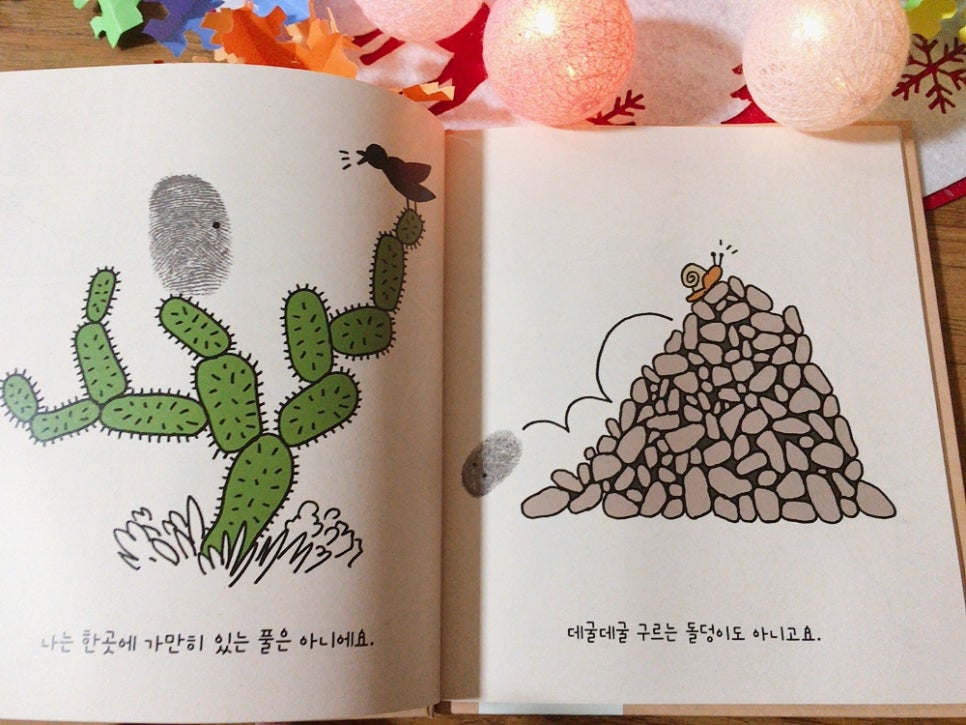 나는 한곳에 가만히 있는 풀은 아니에요.
데굴데굴 구르는 돌덩이도 아니고요.